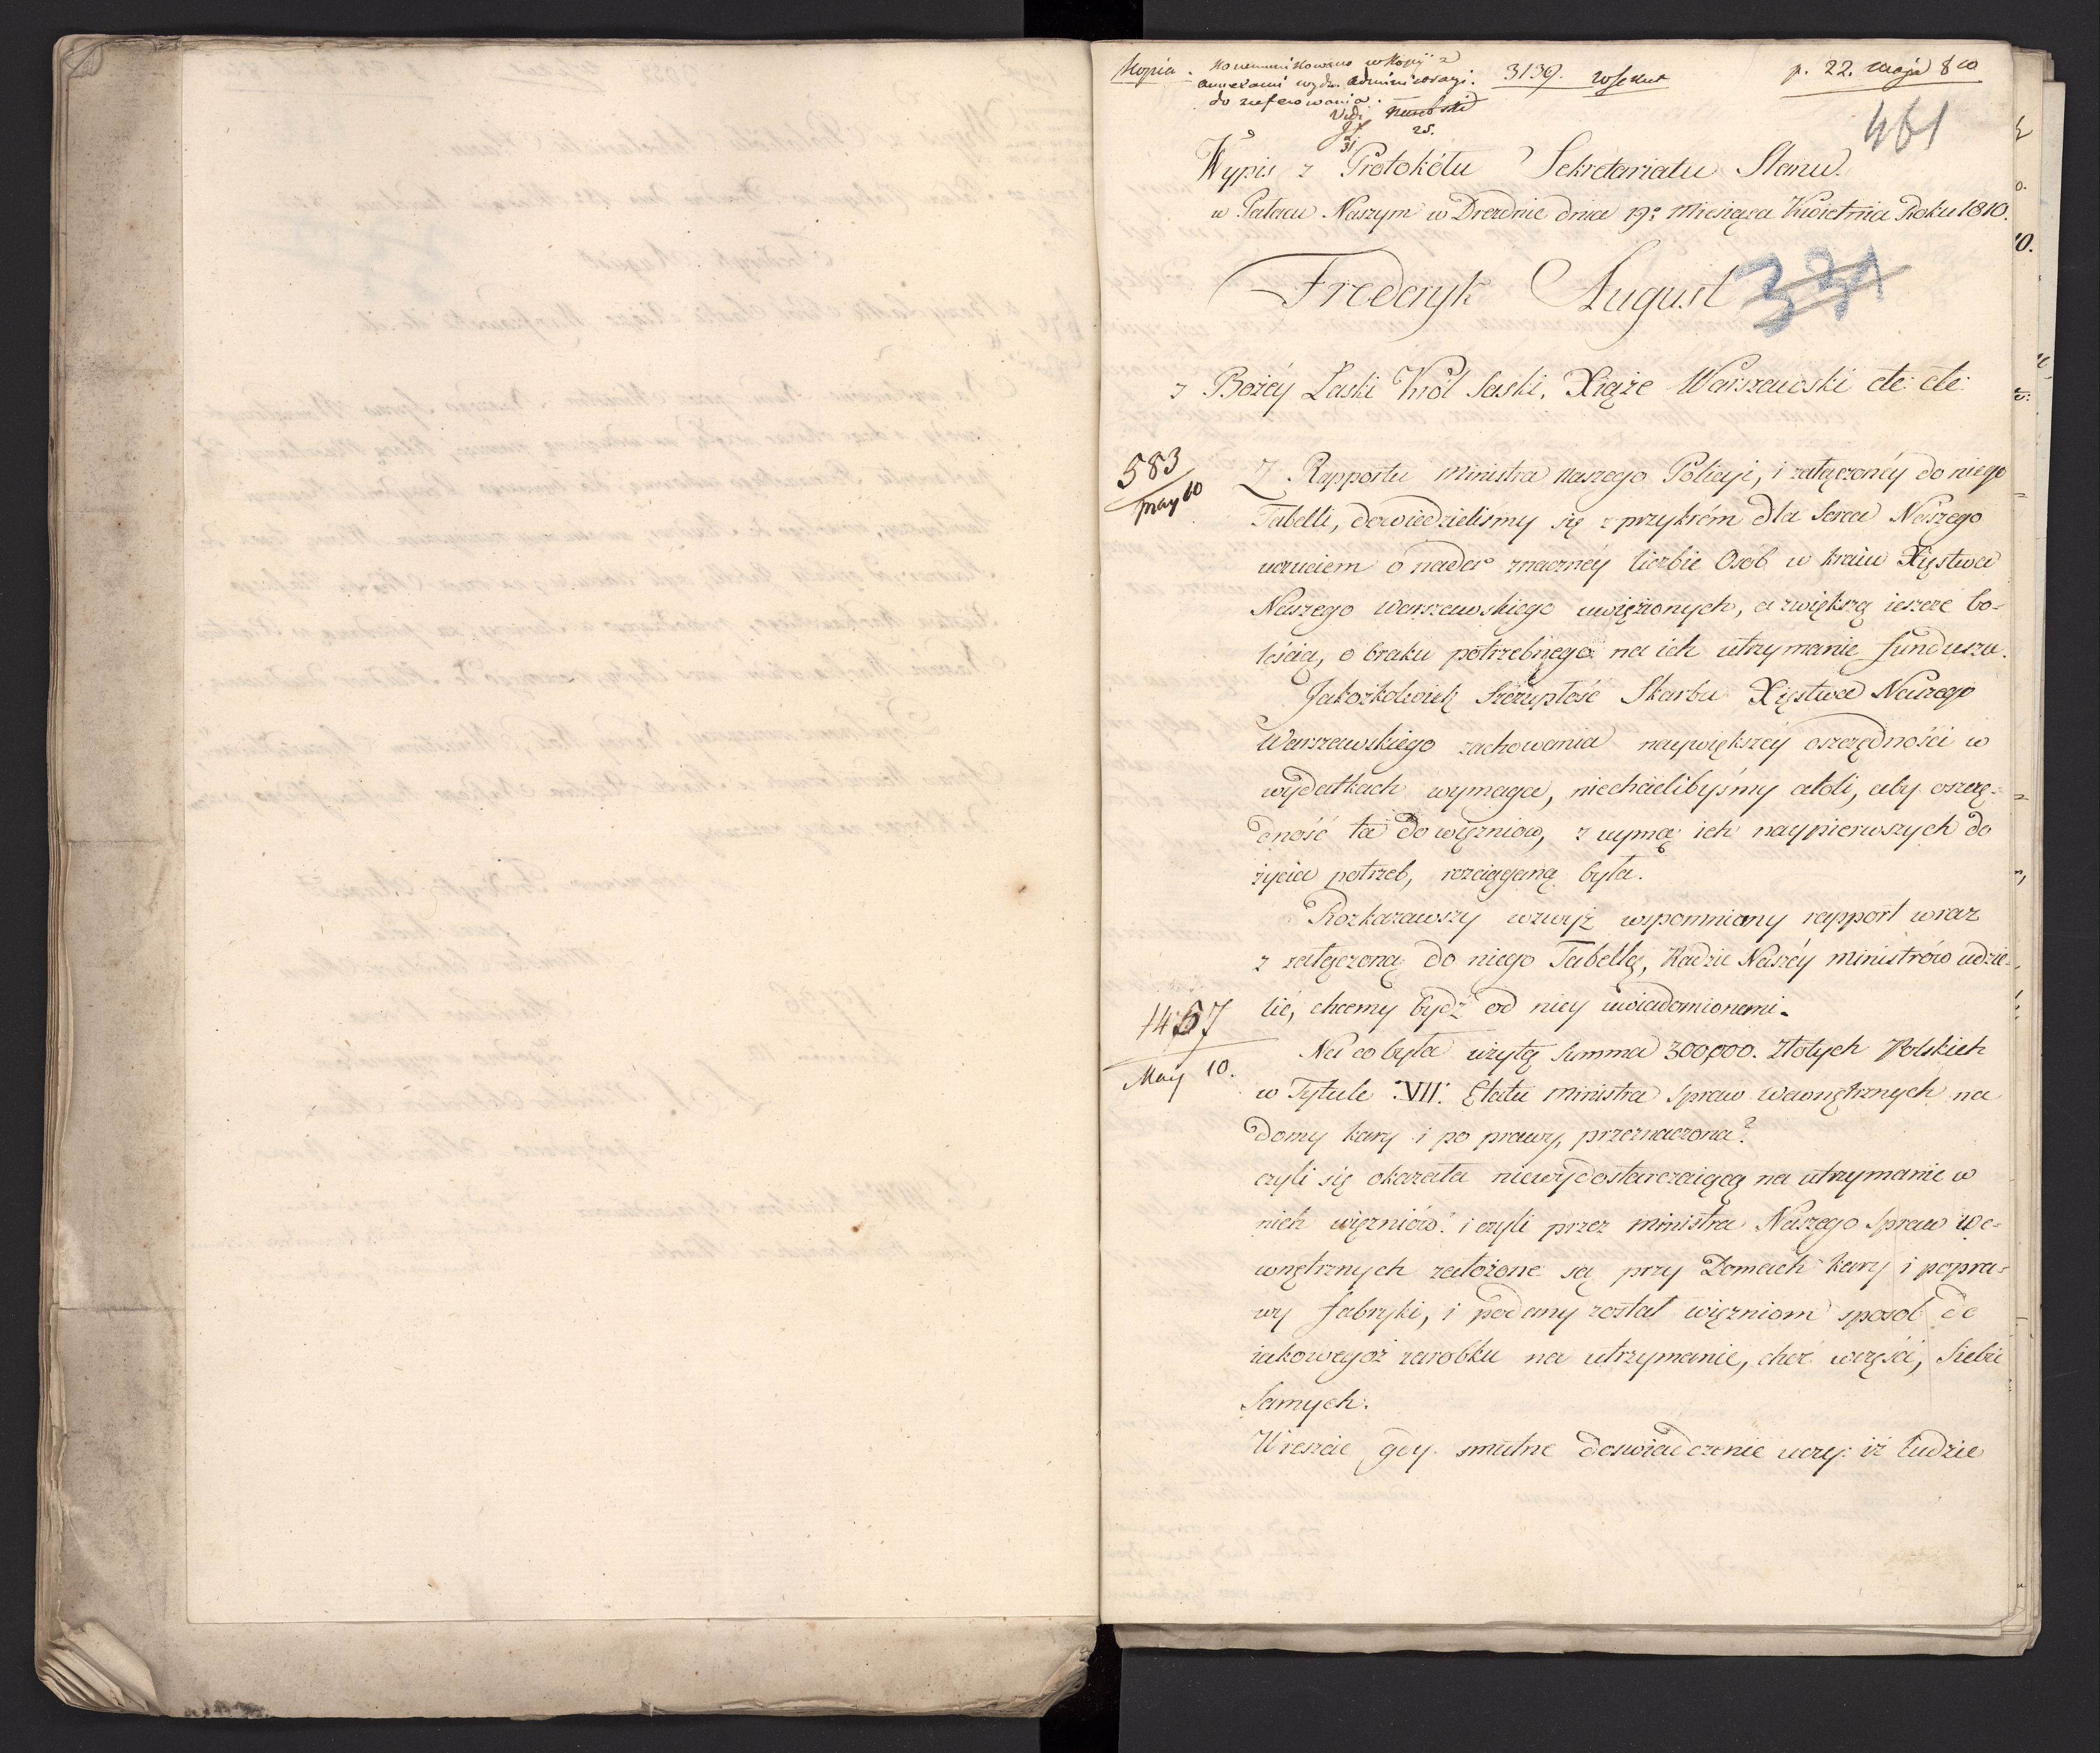 Kopia. kommunikowano w kopij z
annexami wydz. administracyi. 3139. p. 22. maja 810
do referowania.
Vidi
25.
31
461
Wypis z Protokółu Sekretariatu Stanu.
w Pałacu Naszym w Dreznie dnia 19º Miesiąca Kwietnia Roku 1810.
Frederyk August
331
z Bożéy Łaski Król Saski, Xiąże Warszawski etc: etc:
583
may 10
Z Rapportu Ministra Naszego Policyi, i załączonéy do niego
Tabelli, dowiedzielismy się z przykrém dla Serca Naszego
uczuciem o nader znacznéy liczbie Osób w kraiu Xięstwa
Naszego Warszawskiego uwięzionych, a zwiększą ieszcze bo-
leścią, o braku potrzebnego na ich utrzymanie funduszu.
Jakożkolwiek Szczupłość Skarbu Xięstwa Naszego
Warszawskiego zachowania naywiększéy oszczędności w
wydatkach wymaga, niechcielibyśmy atoli, aby oszczę-
dność ta do więzniow, z uymą ich naypierwszych do
życia potrzeb, rozciąganą była.
Rozkazawszy wzwyż wspomniony rapport wraz
z załączoną do niego Tabellą, Radzie Naszéy Ministrów udzie-
lić, chcemy bydź od niey uwiadomionemi.
1467
May 10.
Na co była użytą Summa 300,000. Złotych Polskich
w Tytule VII. Etatu Ministra Spraw Wewnętrznych na
Domy kary i po prawy, przeznaczona?
czyli się okazała niewydostarczaiącą na utrzymanie w
nich więzniów? i czyli przez Ministra Naszego Spraw We-
wnętrznych założone są przy Domach kary i popra-
wy fabryki, i podany został więzniom sposób do
iakowegoż zarobku na utrzymanie, choć w części, Siebie
Samych.
Wreszcie gdy smutne doswiadczenie uczy: iż ludzie